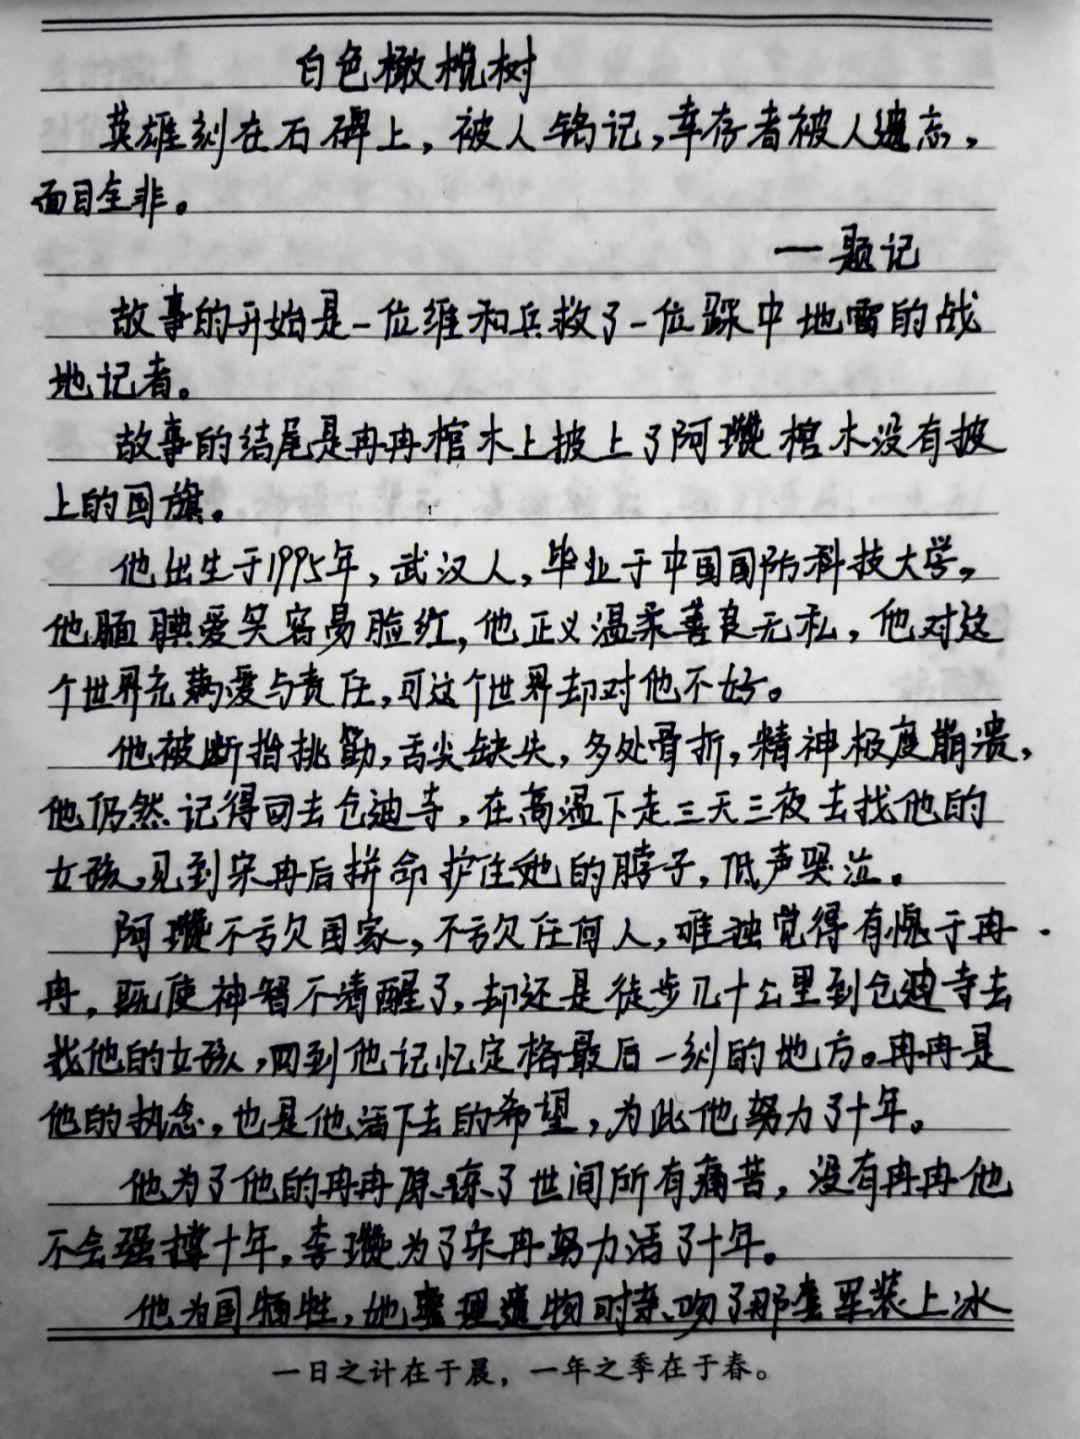 白色橄榄树
英雄刻在石碑上，被人铭记，幸存者被人遗忘，
面目全非。
一题记
故事的开始是一位维和兵救了一位踩中地雷的战
地记者。
故事的结尾是冉冉棺木上披上了阿瓒棺木没有披
上的国旗。
他出生于1995年，武汉人，毕业于中国国防科技大学，
他腼腆爱笑容易脸红，他正义温柔善良无私，他对这
个世界充满爱与责任，可这个世界却对他不好。
他被断指挑筋，舌尖缺失，多处骨折，精神极度崩溃，
他仍然记得回去仓迪寺，在高温下走三天三夜去找他的
女孩，见到宋冉后拼命护住她的脖子，低声哭泣。
阿瓒不亏欠国家，不亏欠任何人，唯独觉得有愧于冉
冉，既使神智不清醒了，却还是徒步几十公里到仓迪寺去
找他的女孩，回到他记忆定格最后一刻的地方。冉冉是
他的执念，也是他活下去的希望，为此他努力了十年。
他为了他的冉冉原谅了世间所有痛苦，没有冉冉他
不会强撑十年，李瓒为了宋冉努力活了十年。
他为国牺牲，她整理遗物时亲吻了那套军装上冰
一日之计在于晨，一年之季在于春。